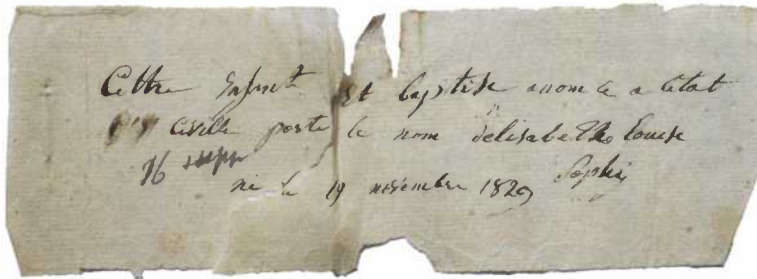 Cettre Enfent Et baptise anom le a letat
Civille porte le nom delisabethe louise
Sophie
16
né le 19 novembre 1829